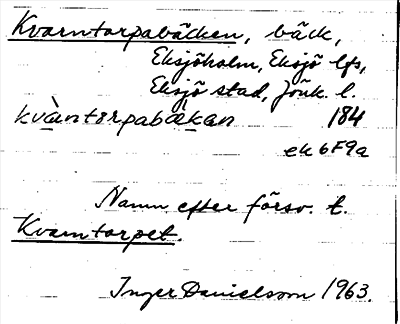 Kvarntorpabäcken, bäck,
Eksjöholm, Eksjö lfs,
Eksjö stad, Jönk. l.
kvàntorpabäkan 184
ek 6F9a
Namn efter försv. t.
Kvarntorpet.
Inger Danielsson 1963.